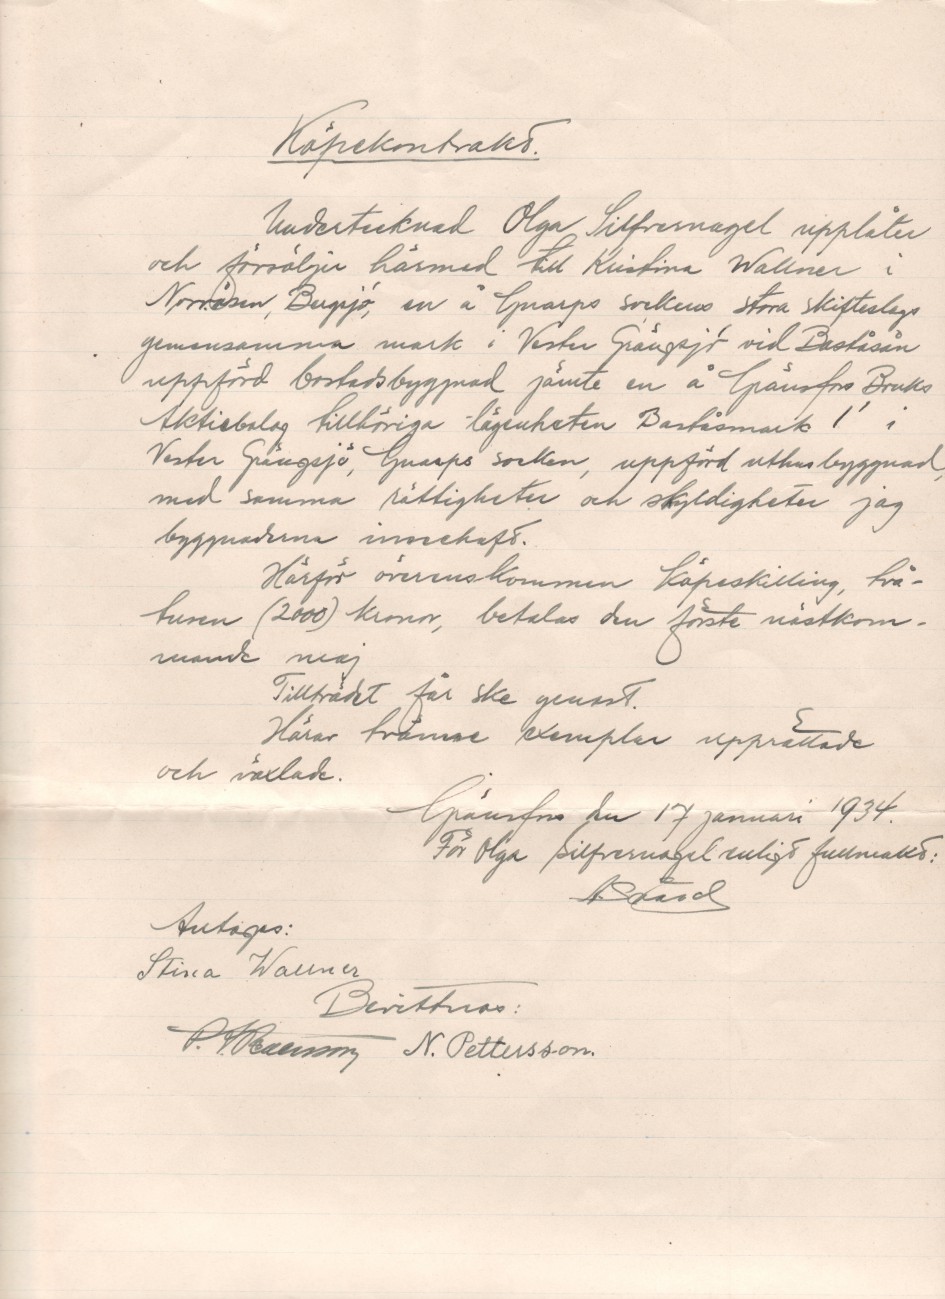 Köpekontrakt.
Undertecknad Olga Silfvernagel upplåter
och försäljer härmed till Kristina Wallner i
Norråsen, Bergsjö, en å Gnarps sockens stora skifteslags
gemensamma mark i Vester Grängsjö vid Baståsån
uppförd bostadsbyggnad jämte en å Gränsfors Bruks
Aktiebolag tillhöriga lägenheten Baståsmark 1' i
Vester Grängsjö, Gnarps socken, uppförd uthusbyggnad,
med samma rättigheter och skyldigheter jag
byggnaderna innehaft.
Härför överenskommen köpeskilling, två-
tusen (2000) kronor, betalas den förste nästkom-
mande maj
Tillträdet får ske genast.
Härav tvänne exemplar upprättade
och växlade.
Gränsfors den 17 januari 1934.
För Olga Silfvernagel enligt fullmakt:
Antages:
Stina Wallner
Bevittnas:
N. Pettersson.